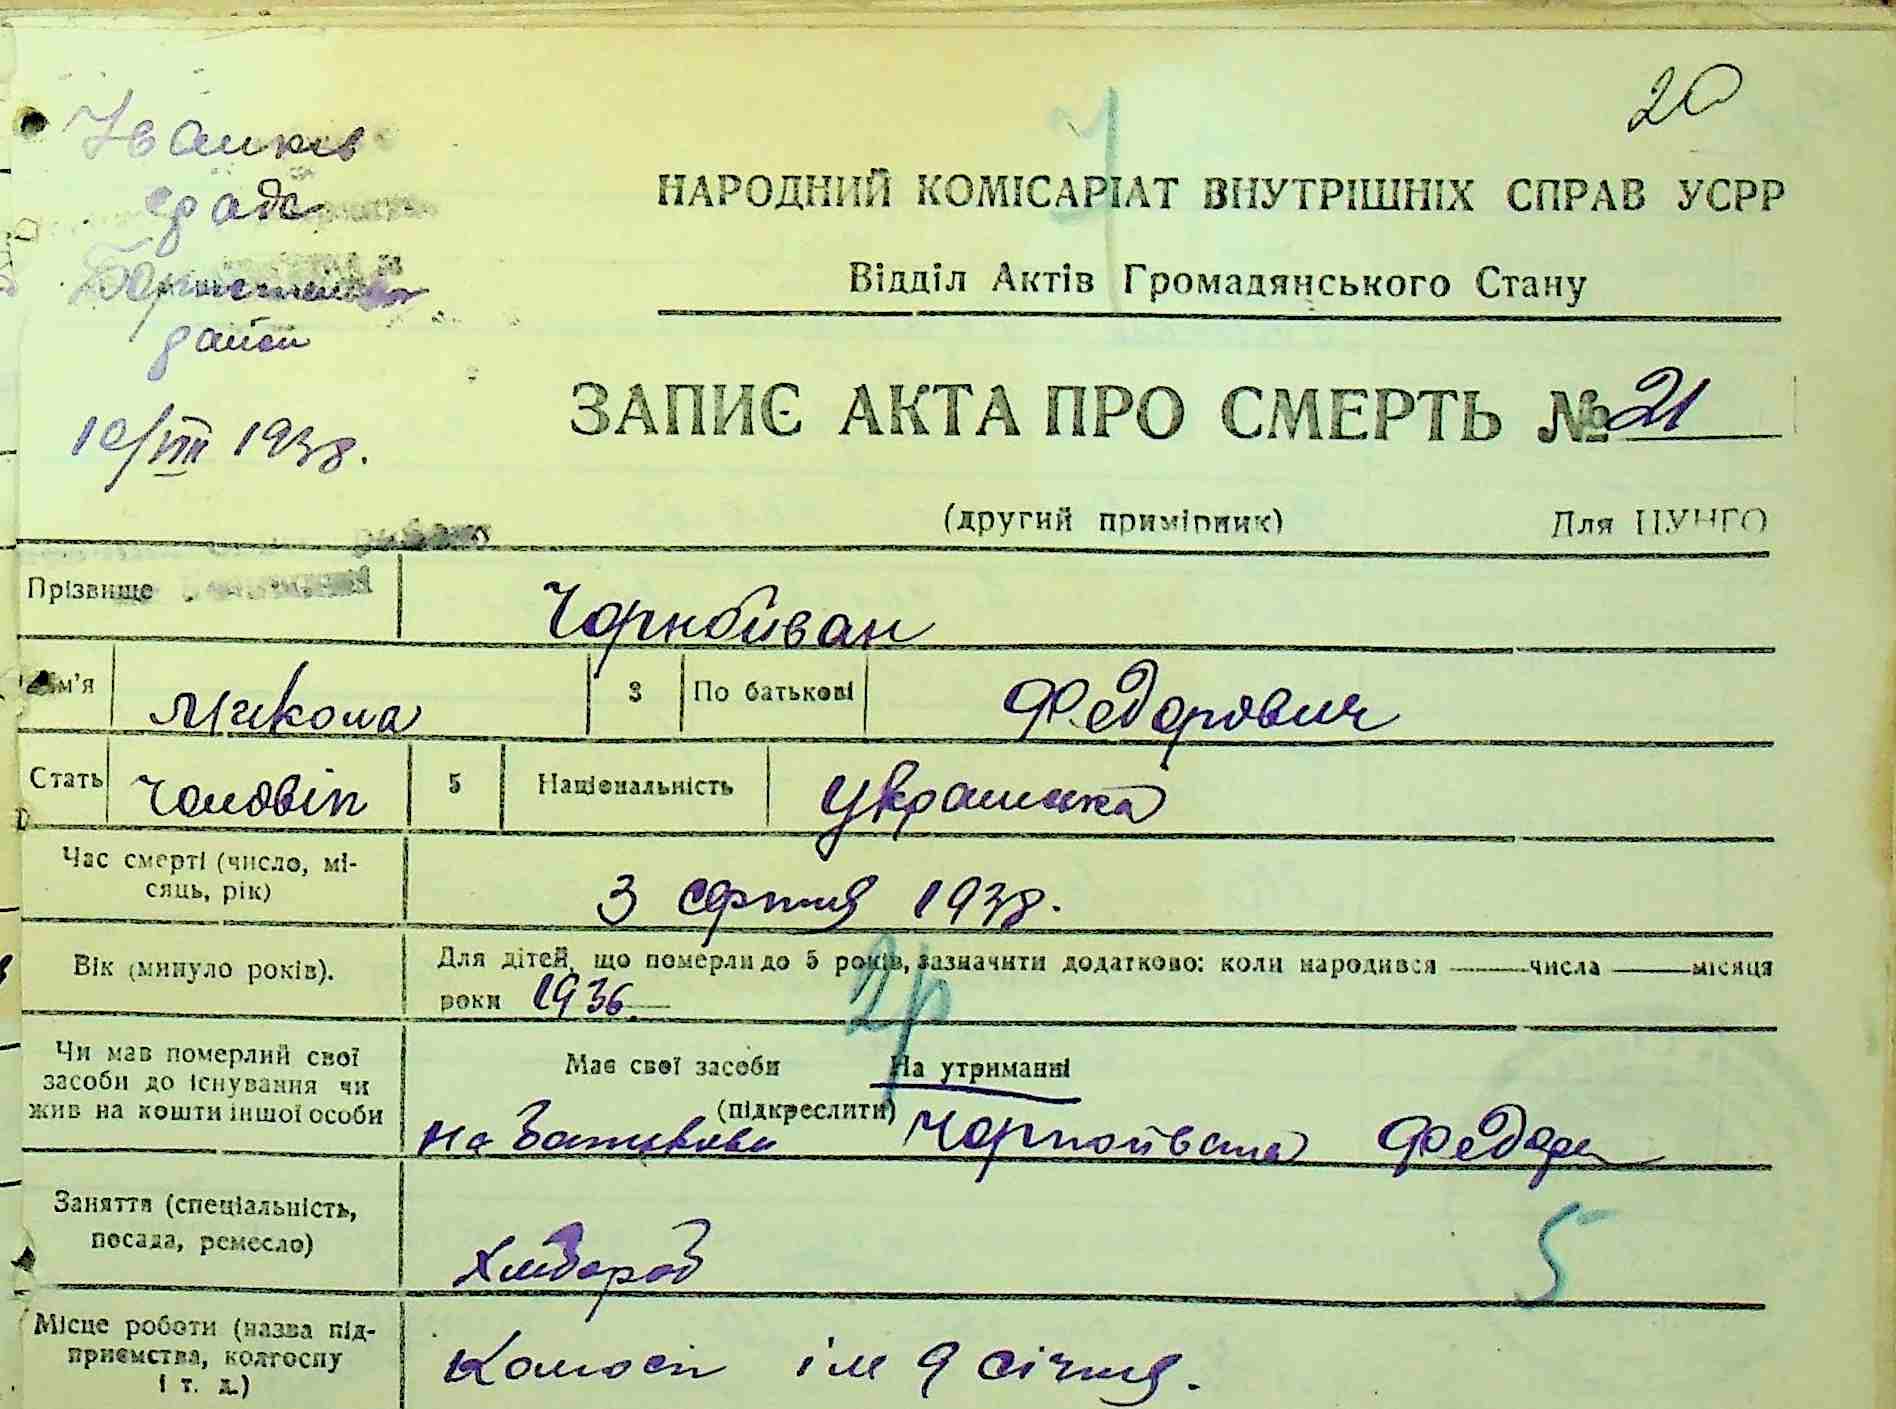 20
Іванків
с/рада
Бориспільськ
район
10/VIII 1938.
НАРОДНИЙ КОМІСАРІАТ ВНУТРІШНІХ СПРАВ УСРР
Відділ Актів Громадянського Стану
ЗАПИС АКТА ПРО СМЕРТЬ № 21
(другий примірник) Для ЦУНГО
Прізвище Чорнойван
Ім'я Микола 3 По батькові Федорович
Стать чоловік 5 Національність українка
Час смерті (число, мі-
сяць, рік) 3 серпня 1938.
Вік (минуло років). Для дітей, що померли до 5 років, зазначити додатково: коли народився числа місяця
роки 1936. 2р
Чи мав померлий свої
засоби до існування чи
жив на кошти іншої особи
Має свої засоби На утриманні
(підкреслити)
на батькови Чорнойвана Федора
Заняття (спеціальність,
посада, ремесло) Хлібороб 5
Місце роботи (назва під-
приємства, колгоспу
і т. д.) Колгосп ім 9 січня.